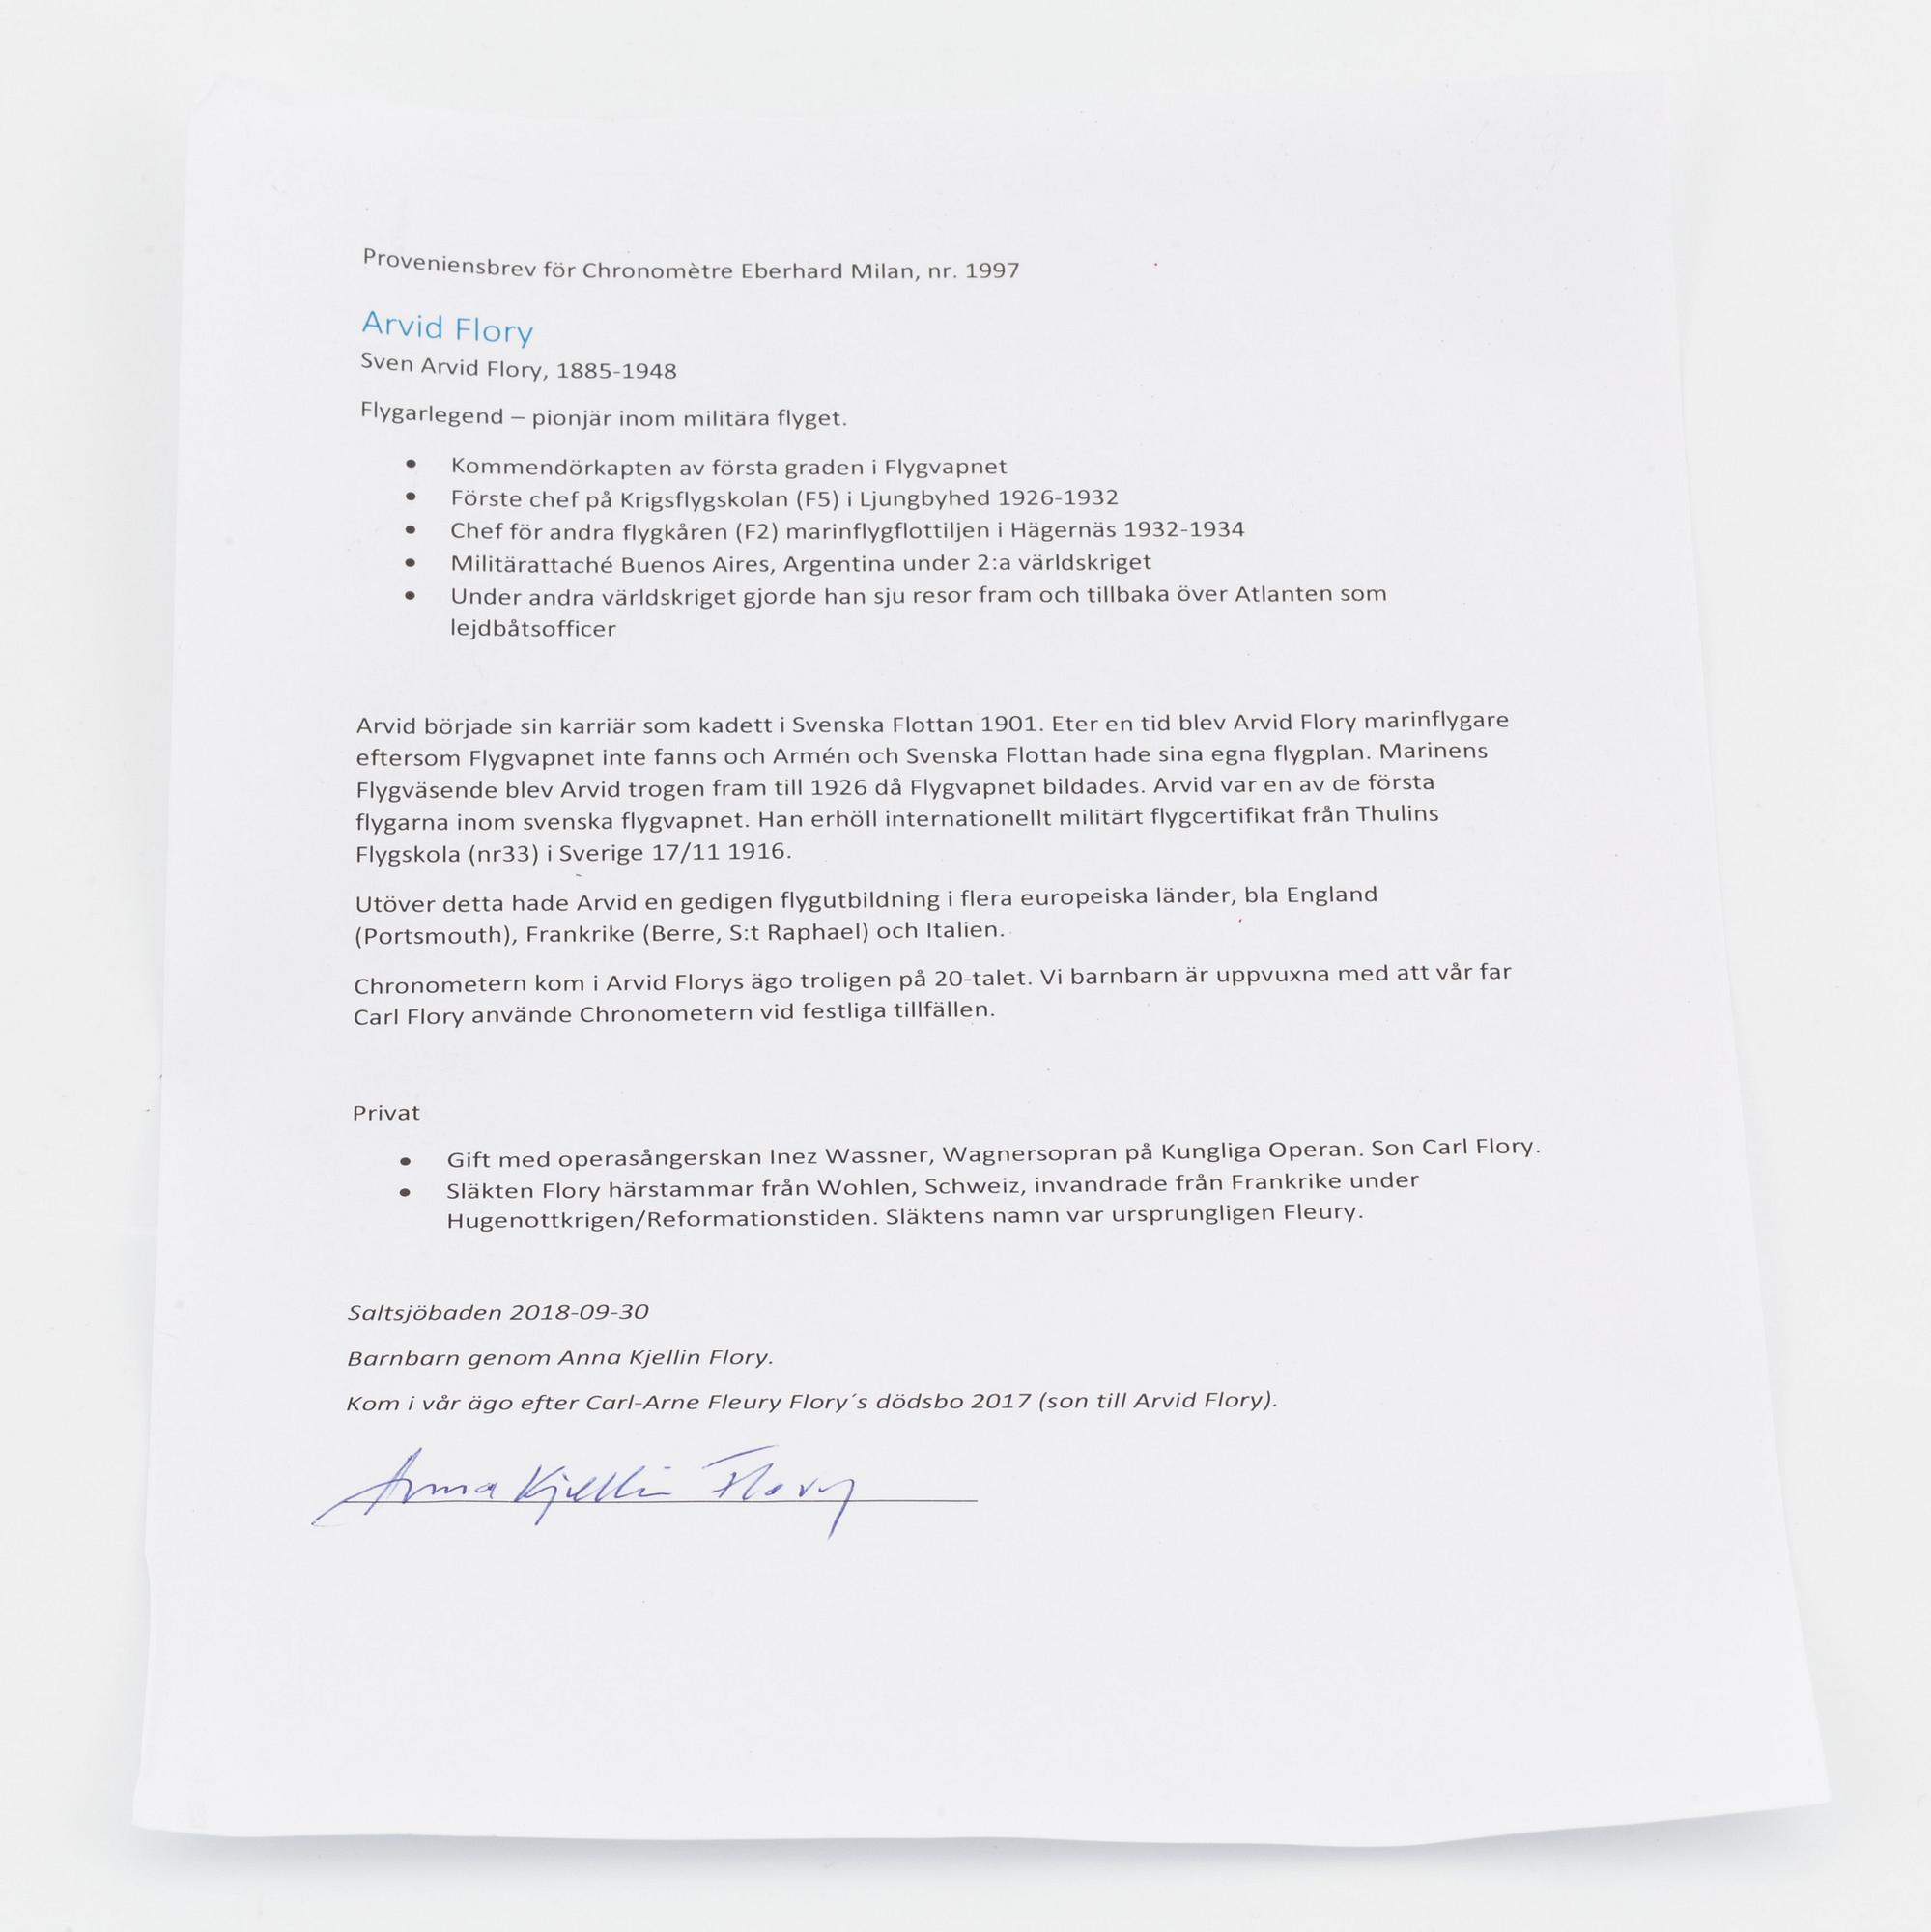 Proveniensbrev för Chronomètre Eberhard Milan, nr. 1997
Arvid Flory
Sven Arvid Flory, 1885-1948
Flygarlegend – pionjär inom militära flyget.
• Kommendörkapten av första graden i Flygvapnet
• Förste chef på Krigsflygskolan (F5) i Ljungbyhed 1926-1932
• Chef för andra flygkåren (F2) marinflygflottiljen i Hägernäs 1932-1934
• Militärattaché Buenos Aires, Argentina under 2:a världskriget
• Under andra världskriget gjorde han sju resor fram och tillbaka över Atlanten som
lejdbåtsofficer
Arvid började sin karriär som kadett i Svenska Flottan 1901. Eter en tid blev Arvid Flory marinflygare
eftersom Flygvapnet inte fanns och Armén och Svenska Flottan hade sina egna flygplan. Marinens
Flygväsende blev Arvid trogen fram till 1926 då Flygvapnet bildades. Arvid var en av de första
flygarna inom svenska flygvapnet. Han erhöll internationellt militärt flygcertifikat från Thulins
Flygskola (nr33) i Sverige 17/11 1916.
Utöver detta hade Arvid en gedigen flygutbildning i flera europeiska länder, bla England
(Portsmouth), Frankrike (Berre, S:t Raphael) och Italien.
Chronometern kom i Arvid Florys ägo troligen på 20-talet. Vi barnbarn är uppvuxna med att vår far
Carl Flory använde Chronometern vid festliga tillfällen.
Privat
• Gift med operasångerskan Inez Wassner, Wagnersopran på Kungliga Operan. Son Carl Flory.
• Släkten Flory härstammar från Wohlen, Schweiz, invandrade från Frankrike under
Hugenottkrigen/Reformationstiden. Släktens namn var ursprungligen Fleury.
Saltsjöbaden 2018-09-30
Barnbarn genom Anna Kjellin Flory.
Kom i vår ägo efter Carl-Arne Fleury Flory´s dödsbo 2017 (son till Arvid Flory).
Anna Kjellin Flory